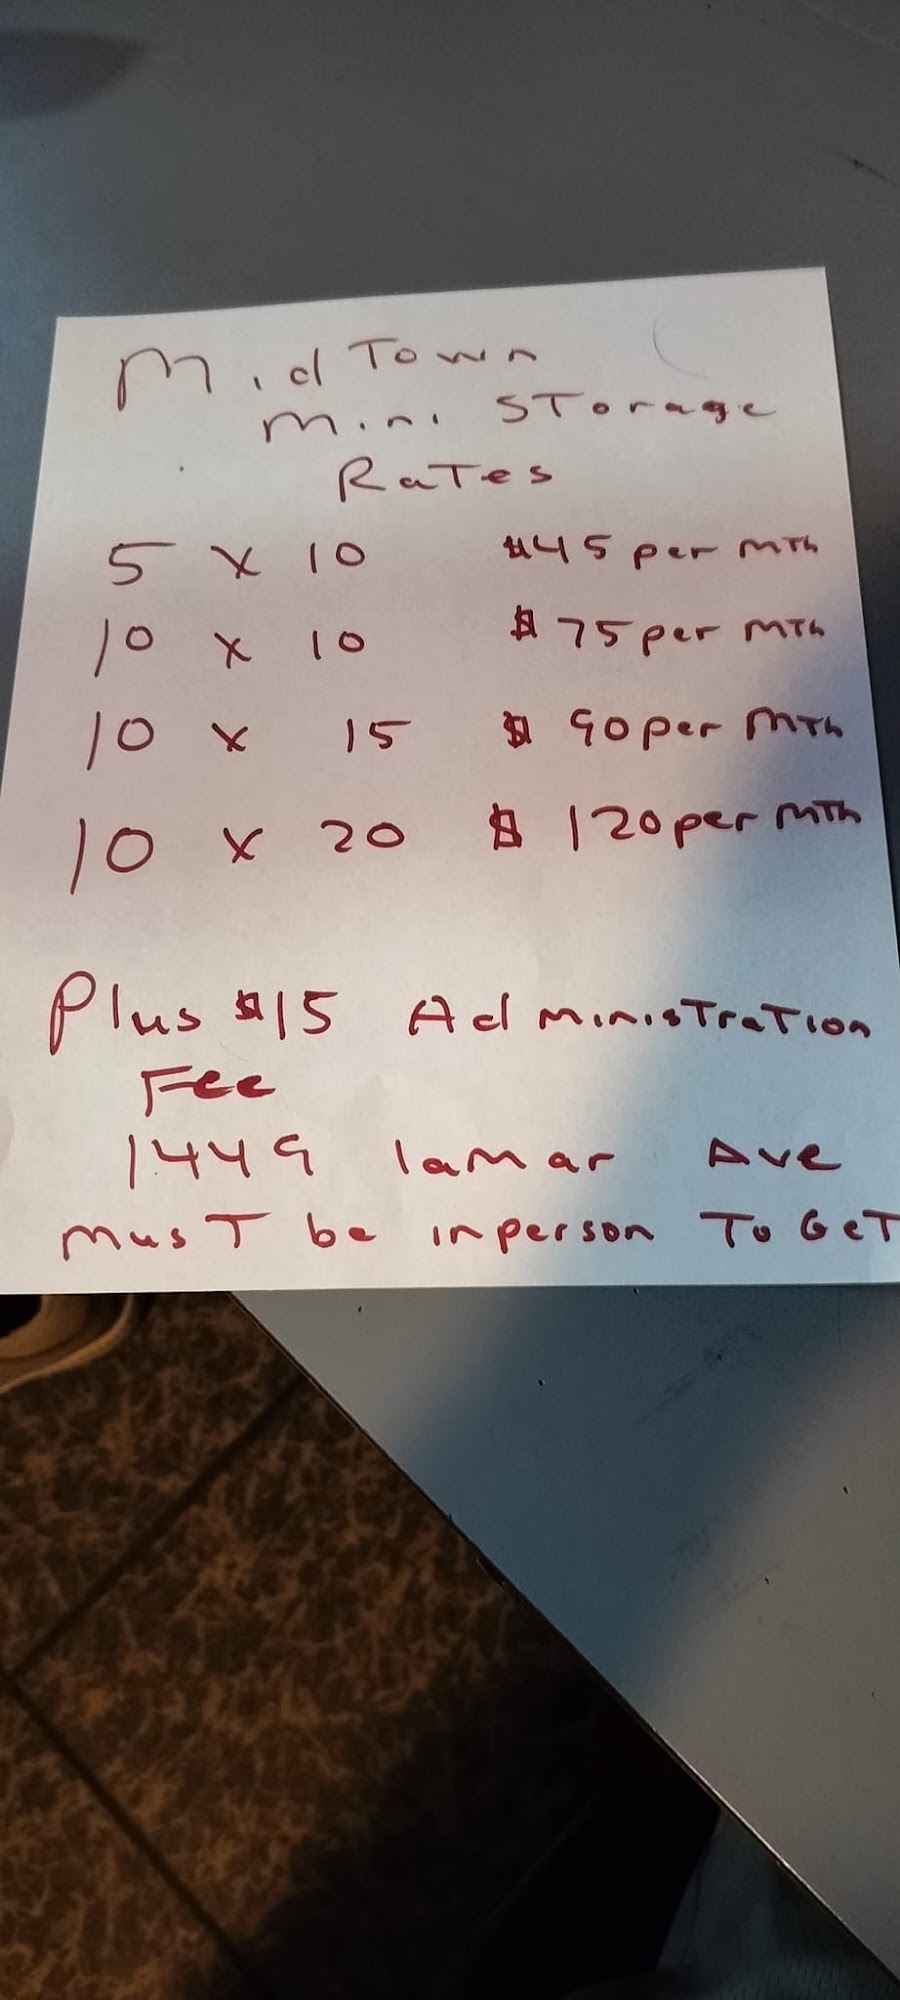 MidTown
Mini STorage
RaTes
5 x 10 $45 per mTh
10 x 10 $75 per mTh
10 x 15 $90 per mTh
10 x 20 $120 per mTh
Plus $15 AdminisTraTion
Fee
1449 lamar Ave
musT be inperson To GeT